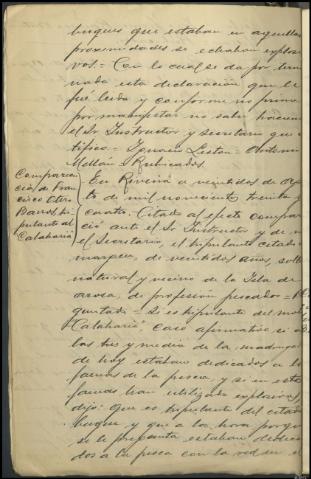 buques que estaban en aquellas
proximidades se echaban explosi-
vos.= Con lo cual se da por termi-
nada esta declaración que le
fué leida y conforme no firma
por manifestar no saber hacerlo
el Sr Instructor y secretario que
tifico= Ignacio Antonio
Rubricados.
Comparecen-
cia de Fran-
cisco Otero
tri-
pulante del
Calaharia
En Riveira a veintidos de
de mil novecientos treinta y
cuatro. Citado al efecto compare-
ció ante el Sr Instructor y de
el Secretario, el tripulante citado
margen, de veintidos años, solt
natural y vecino de la Isla de
Arosa, de profesion pescador=
guntado= Si es tripulante del
Calaharia caso afirmativo si a
las tres y media de la madruga
de hoy estaban dedicados a
faenas de la pesca, y si en esta
faenas han utilizado explosivos,
dijo: Que es tripulante del citado
buque y que a la hora porque
se le pregunta estaban dedica-
dos a la pesca con la red sin